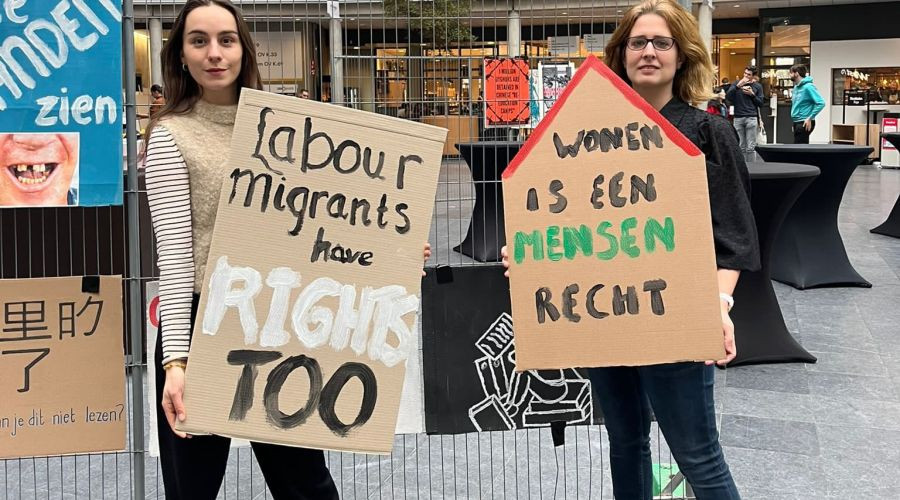 ANDEN
zien
Labour
migrants
have
RIGHTS
TOO
WONEN
IS EEN
MENSEN
RECHT
1 MILLION
UYGHURS ARE
DETAINED IN
CHINESE "RE
EDUCATION
CAMPS
里的
了
an je dit niet lezen?